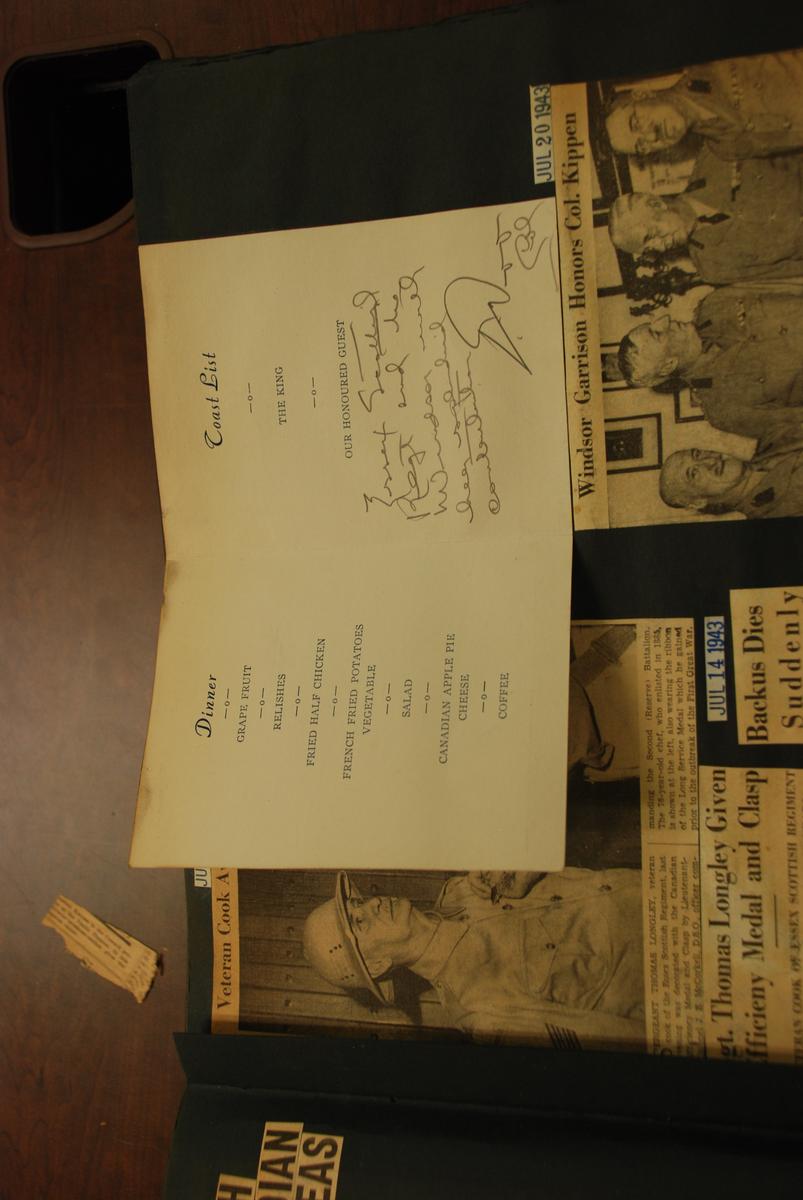 Dinner
—o—
GRAPE FRUIT
—o—
RELISHES
—o—
FRIED HALF CHICKEN
—o—
FRENCH FRIED POTATOES
VEGETABLE
—o—
SALAD
—o—
CANADIAN APPLE PIE
CHEESE
—o—
COFFEE
Toast List
—o—
THE KING
—o—
OUR HONOURED GUEST
Essex Scottish
Regt and the
Windsor
JUL 20 1943
Windsor Garrison Honors Col. Kippen
JU
Veteran Cook Aw
SERGEANT THOMAS LONGLEY, veteran
cook of the Essex Scottish Regiment, last
evening was decorated with the Canadian
Efficiency Medal and Clasp by Lieutenant-
D.S.O., officer com-
manding the Second (Reserve) Battalion.
The 78-year-old chef, who enlisted in 1885,
is shown at the left, also wearing the ribbon
of the Long Service Medal which he gained
prior to the outbreak of the First Great War.
gt. Thomas Longley Given
fficieny Medal and Clasp
TERAN COOK OF ESSEX SCOTTISH REGIMENT
JUL 14 1943
Backus Dies
Suddenly
H
DIAN
EAS